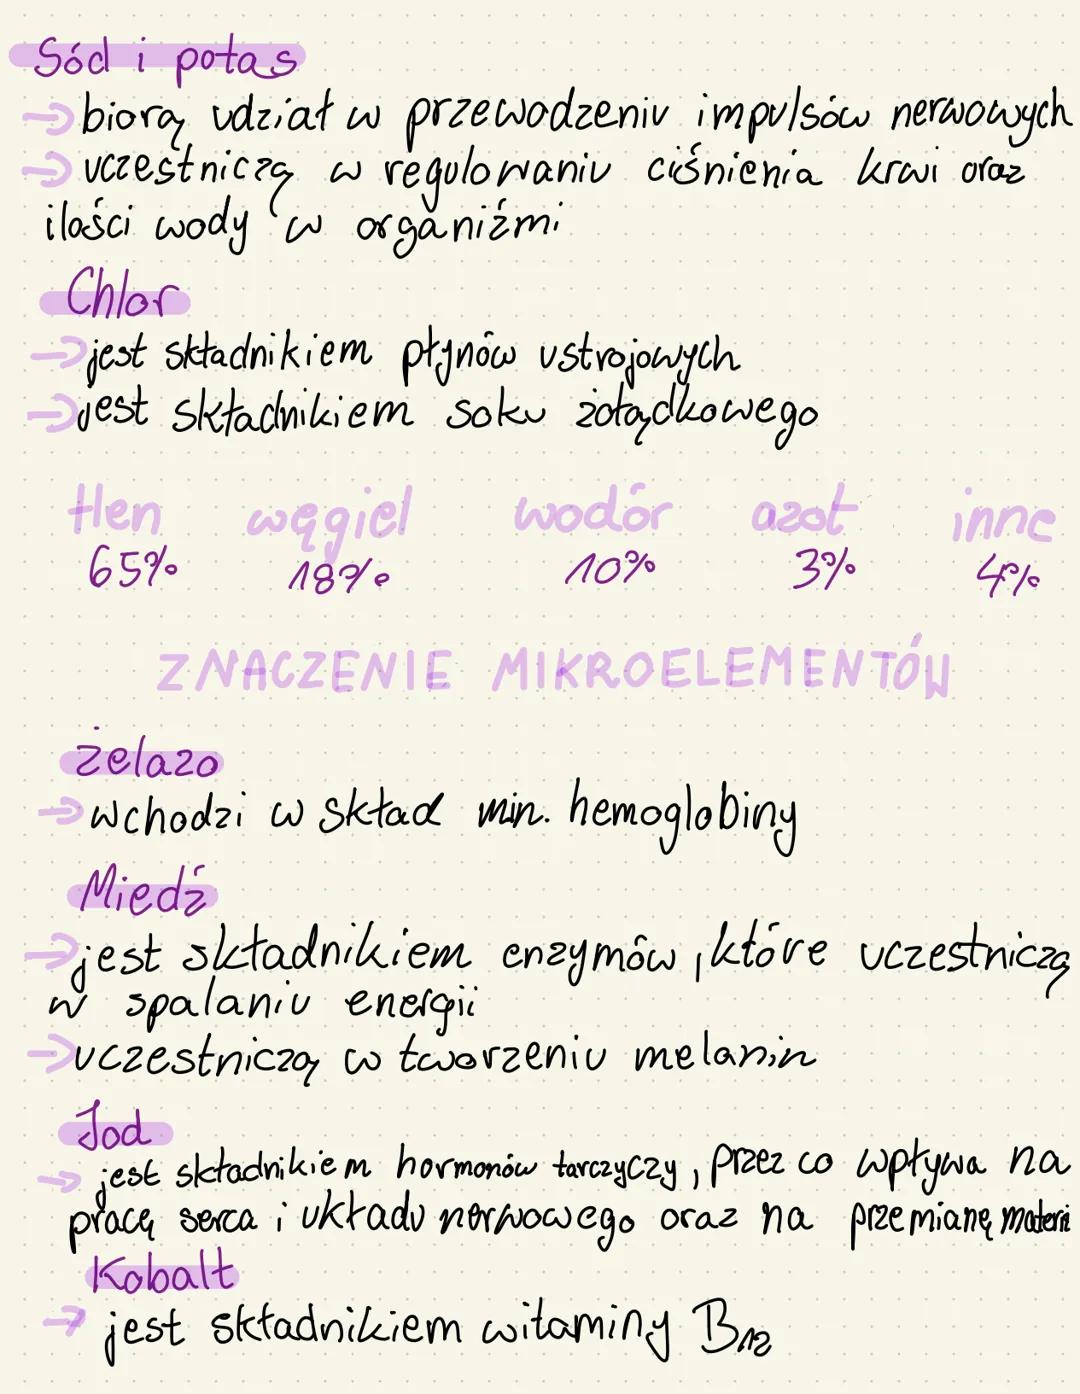 Sód i potas
→ biorą udział w przewodzeniu impulsów nerwowych
→ uczestniczą w regulowaniu ciśnienia krwi oraz
ilości wody w organiźmi
Chlor
→ jest składnikiem płynów ustrojowych
→ jest składnikiem soku żołądkowego
tlen węgiel wodór azot inne
65% 18% 10% 3% 4%
ZNACZENIE MIKROELEMENTÓW
żelazo
→ wchodzi w skład min. hemoglobiny
Miedź
→ jest składnikiem enzymów, które uczestniczą
w spalaniu energii
→ uczestniczą w tworzeniu melanin
Jod
→ jest składnikiem hormonów tarczyczy, przez co wpływa na
pracę serca i układu nerwowego oraz na przemianę materii
Kobalt
→ jest składnikiem witaminy B₁₂